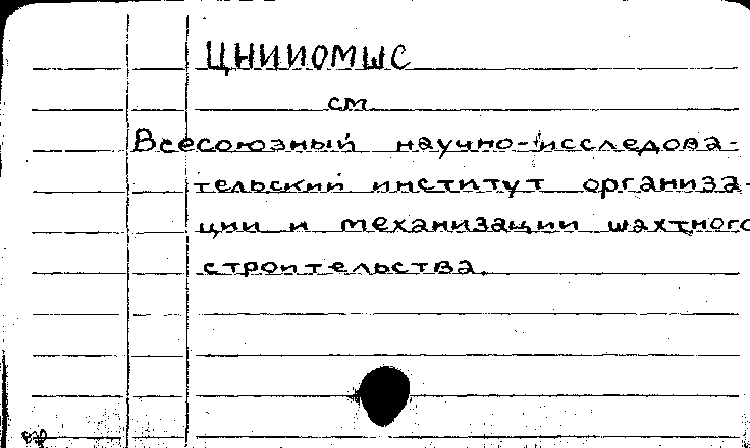 ЦНИИОМШС
см
Всесоюзный научно-исследова-
тельский институт организа-
ции и механизации шахтного
строительства.